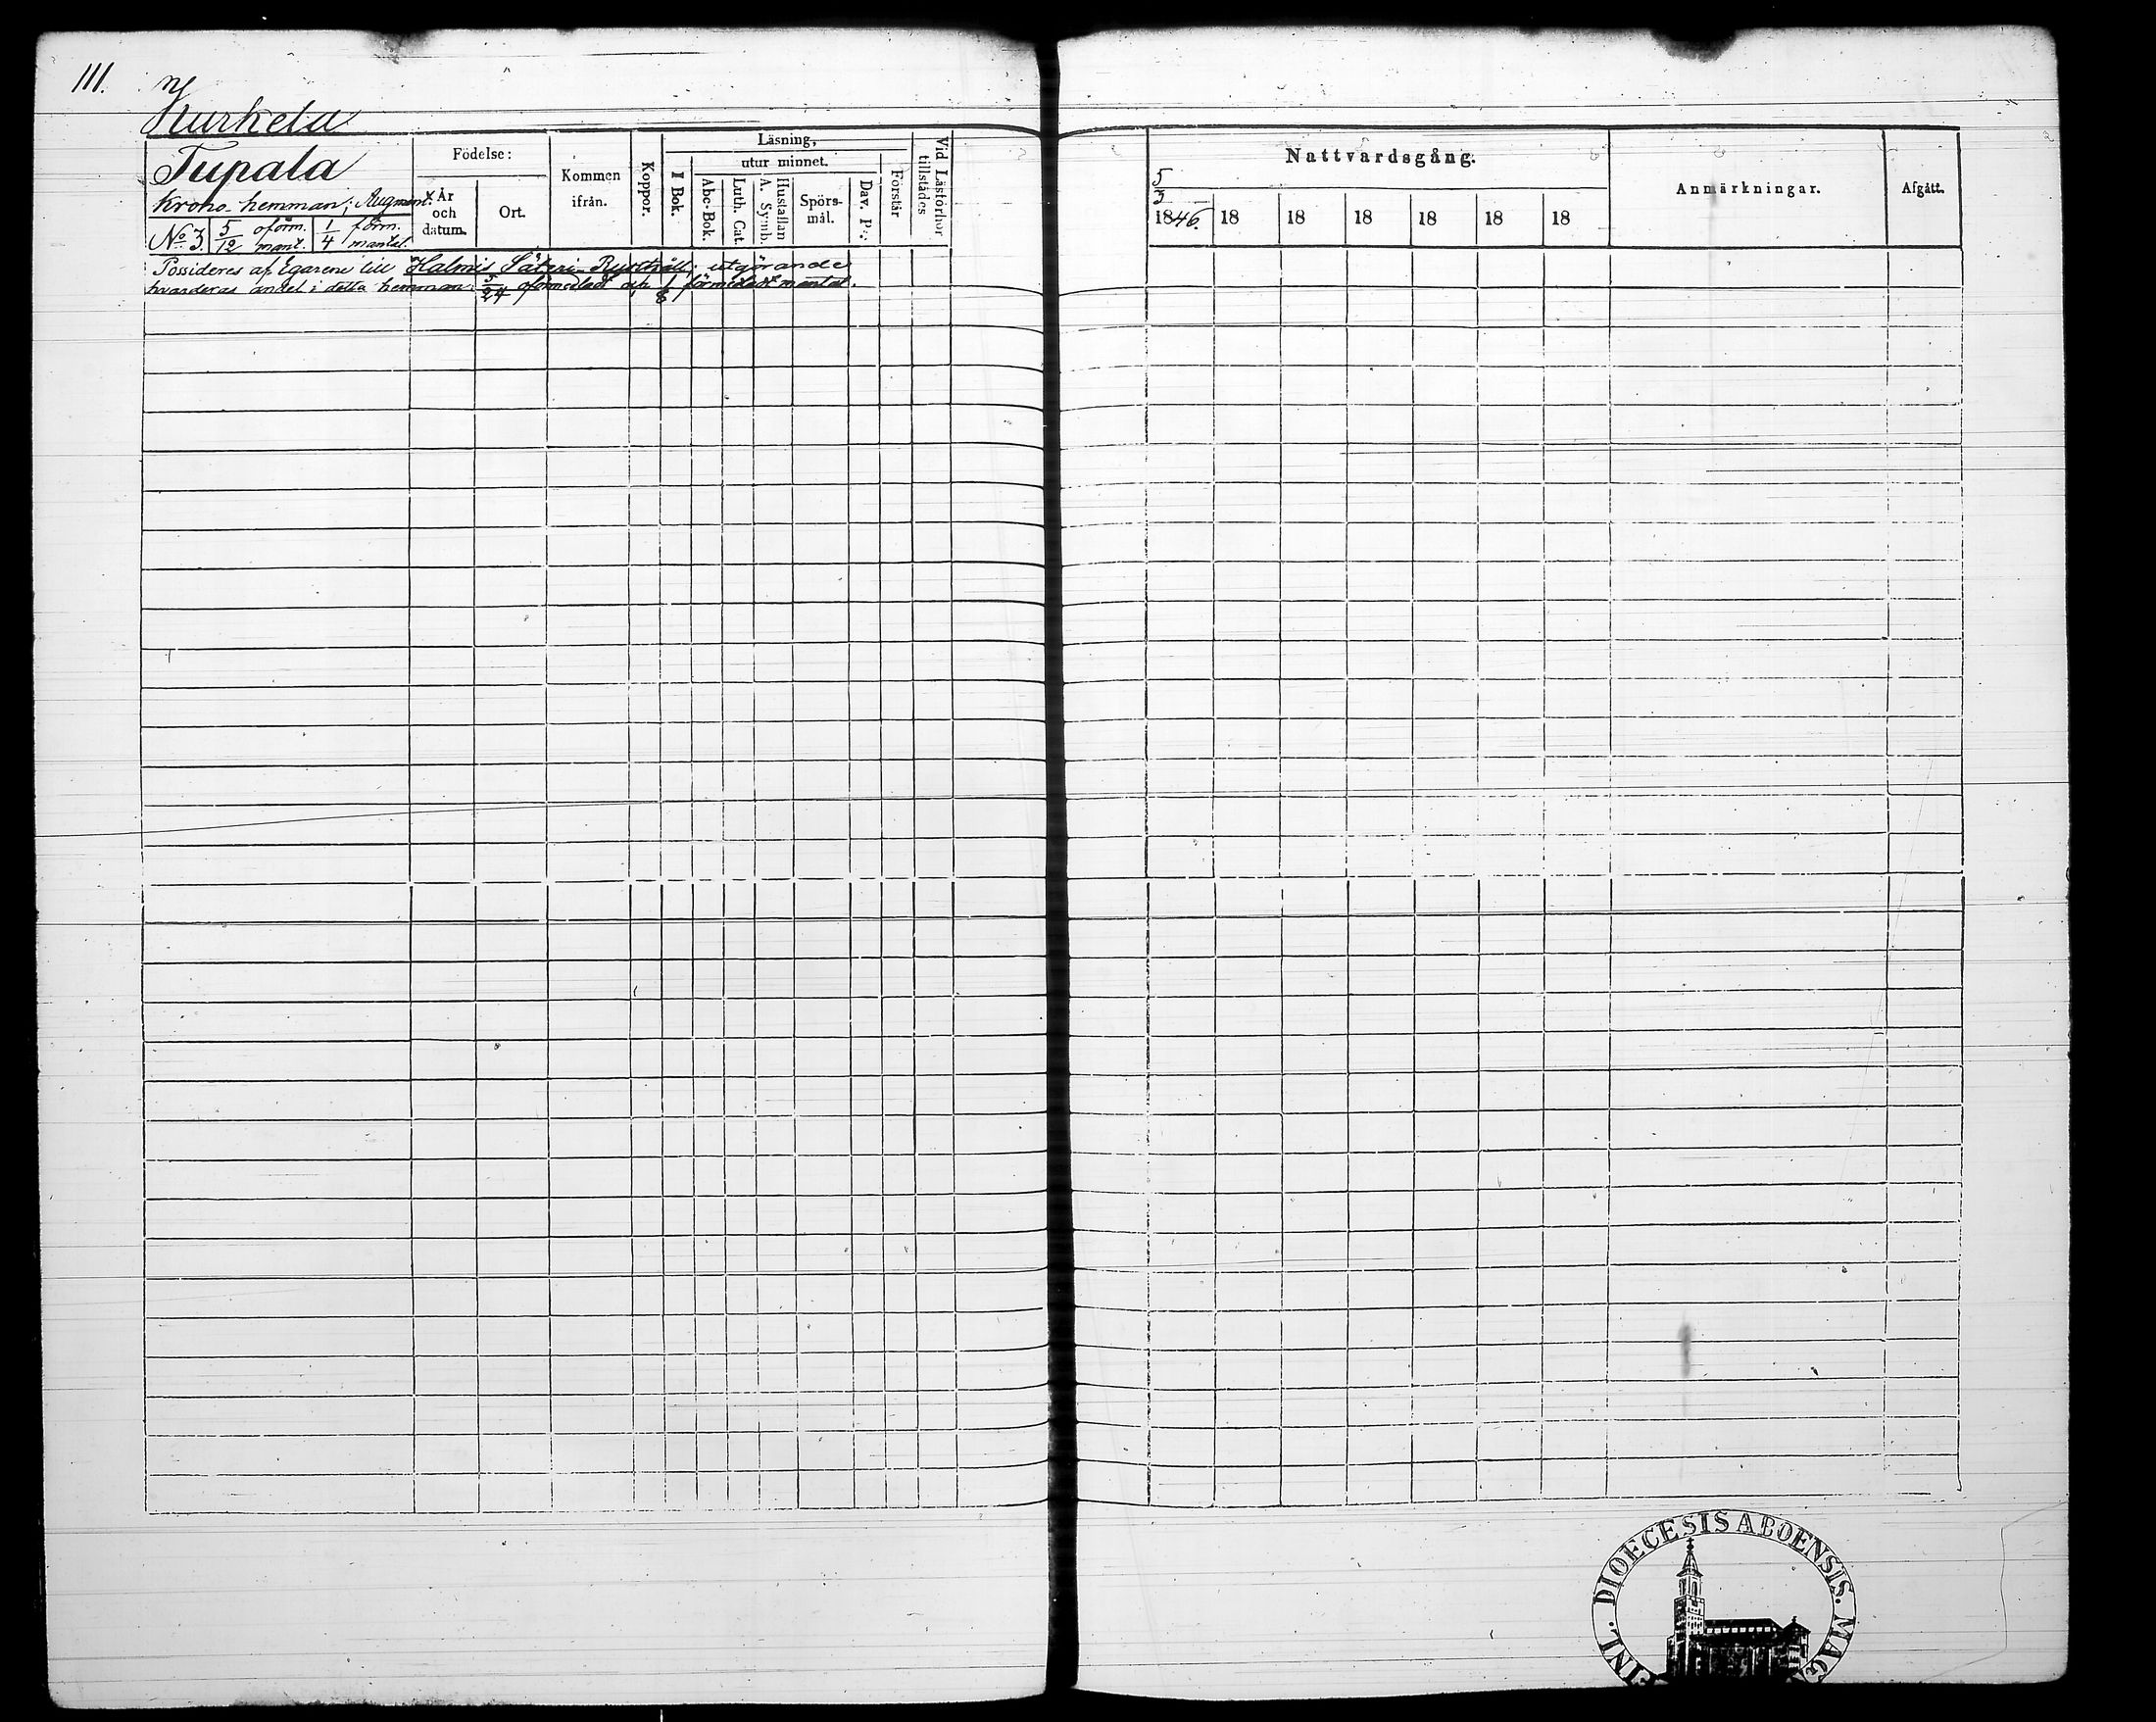 111.
Nurkela
Tupala
Krono-hemman; Augment.
No 3. 5/12 oförm. mant. 1/4 förm. mantal.
Födelse:
År och datum.
Ort.
Kommen ifrån.
Koppor.
Läsning,
I Bok.
utur minnet.
Abc-Bok.
Luth. Cat.
A. Symb.
Hustaflan
Spörs-mål.
Dav. Ps.
Förstår
Vid Läsförhör tillstädes
Possideres af Egarene till Halmis Säteri-Rusthåll; utgörande
hvarderas andel i detta hemman: 5/24 oförmedladt och 1/8 förmedladt mantal.
Nattvardsgång.
5/3
1846. 18 18 18 18 18 18
Anmärkningar.
Afgått.
DIOECESIS ABOENSIS. MAG